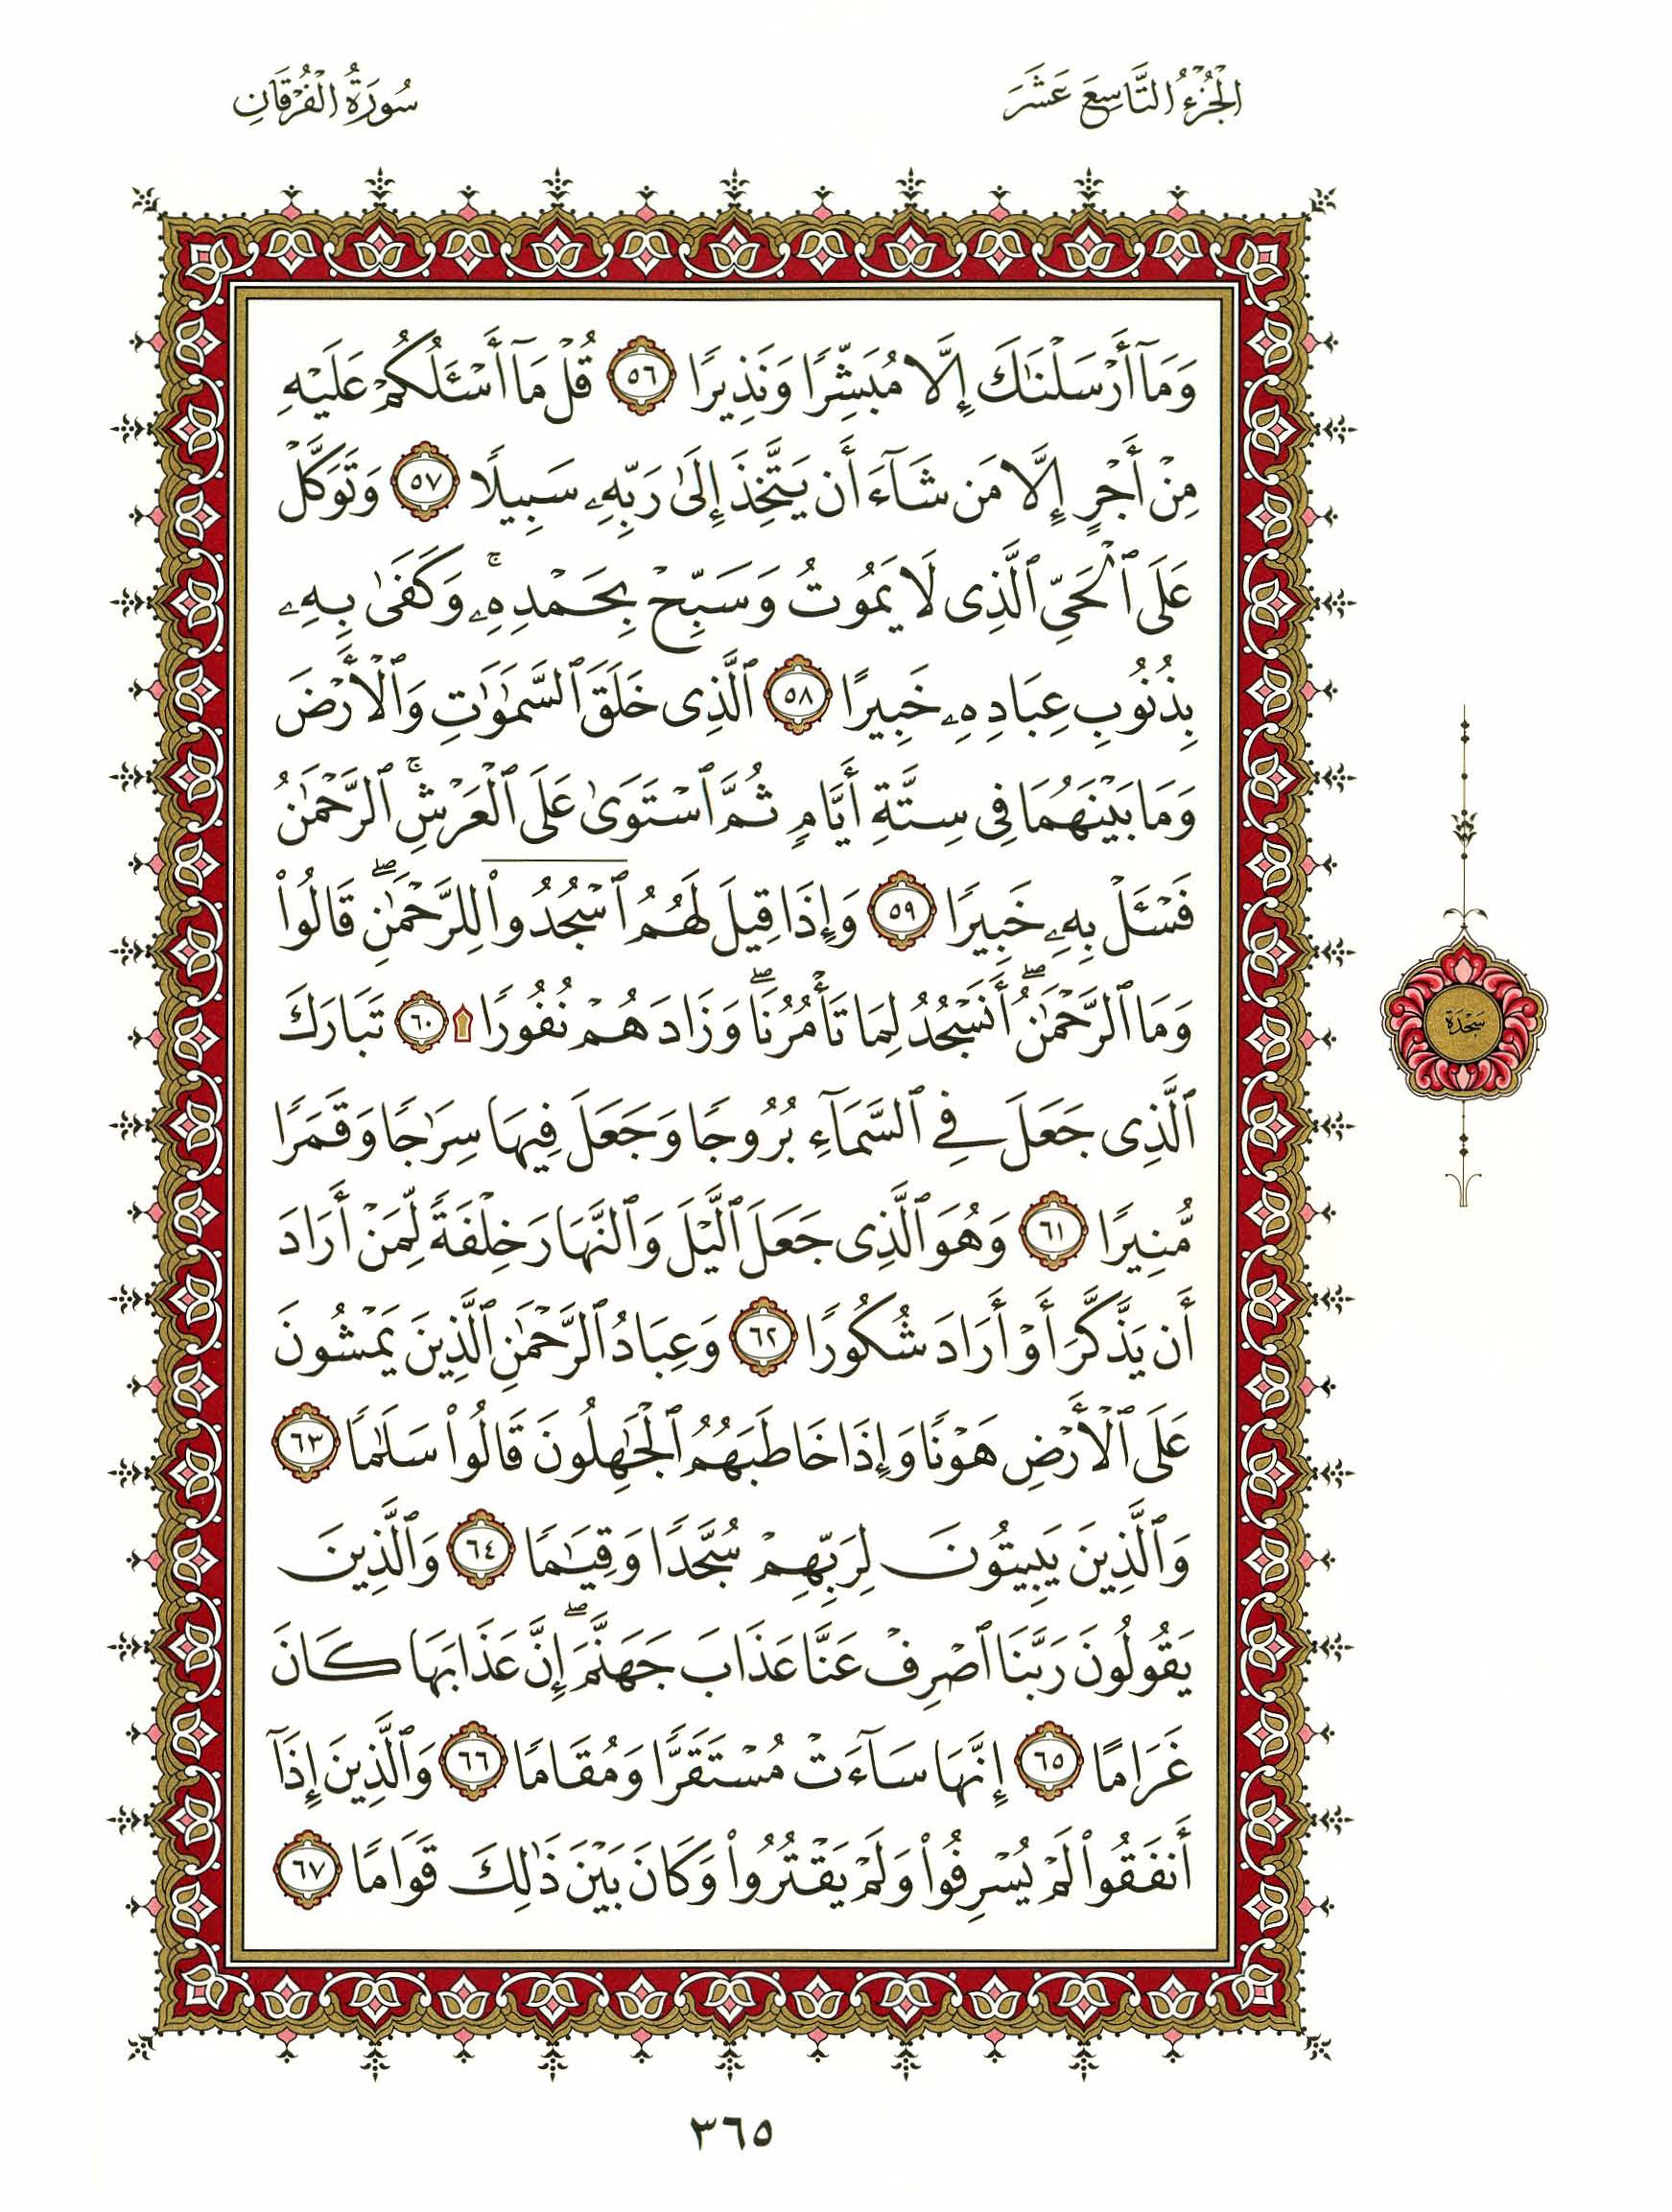 الْجُزْءُ التَّاسِعَ عَشَرَ
سُورَةُ الْفُرْقَانِ
وَمَآ أَرْسَلْنَٰكَ إِلَّا مُبَشِّرًا وَنَذِيرًا ٥٦ قُلْ مَآ أَسْـَٔلُكُمْ عَلَيْهِ
مِنْ أَجْرٍ إِلَّا مَن شَآءَ أَن يَتَّخِذَ إِلَىٰ رَبِّهِۦ سَبِيلًا ٥٧ وَتَوَكَّلْ
عَلَى ٱلْحَىِّ ٱلَّذِى لَا يَمُوتُ وَسَبِّحْ بِحَمْدِهِۦ ۚ وَكَفَىٰ بِهِۦ
بِذُنُوبِ عِبَادِهِۦ خَبِيرًا ٥٨ ٱلَّذِى خَلَقَ ٱلسَّمَٰوَٰتِ وَٱلْأَرْضَ
وَمَا بَيْنَهُمَا فِى سِتَّةِ أَيَّامٍ ثُمَّ ٱسْتَوَىٰ عَلَى ٱلْعَرْشِ ۚ ٱلرَّحْمَٰنُ
فَسْـَٔلْ بِهِۦ خَبِيرًا ٥٩ وَإِذَا قِيلَ لَهُمُ ٱسْجُدُوا۟ لِلرَّحْمَٰنِ ۖ قَالُوا۟
وَمَا ٱلرَّحْمَٰنُ ۖ أَنَسْجُدُ لِمَا تَأْمُرُنَا ۖ وَزَادَهُمْ نُفُورًا ۩ ٦٠ تَبَارَكَ
ٱلَّذِى جَعَلَ فِى ٱلسَّمَآءِ بُرُوجًا وَجَعَلَ فِيهَا سِرَٰجًا وَقَمَرًا
مُّنِيرًا ٦١ وَهُوَ ٱلَّذِى جَعَلَ ٱلَّيْلَ وَٱلنَّهَارَ خِلْفَةً لِّمَنْ أَرَادَ
أَن يَذَّكَّرَ أَوْ أَرَادَ شُكُورًا ٦٢ وَعِبَادُ ٱلرَّحْمَٰنِ ٱلَّذِينَ يَمْشُونَ
عَلَى ٱلْأَرْضِ هَوْنًا وَإِذَا خَاطَبَهُمُ ٱلْجَٰهِلُونَ قَالُوا۟ سَلَٰمًا ٦٣
وَٱلَّذِينَ يَبِيتُونَ لِرَبِّهِمْ سُجَّدًا وَقِيَٰمًا ٦٤ وَٱلَّذِينَ
يَقُولُونَ رَبَّنَا ٱصْرِفْ عَنَّا عَذَابَ جَهَنَّمَ ۖ إِنَّ عَذَابَهَا كَانَ
غَرَامًا ٦٥ إِنَّهَا سَآءَتْ مُسْتَقَرًّا وَمُقَامًا ٦٦ وَٱلَّذِينَ إِذَآ
أَنفَقُوا۟ لَمْ يُسْرِفُوا۟ وَلَمْ يَقْتُرُوا۟ وَكَانَ بَيْنَ ذَٰلِكَ قَوَامًا ٦٧
سَجْدَة
٣٦٥